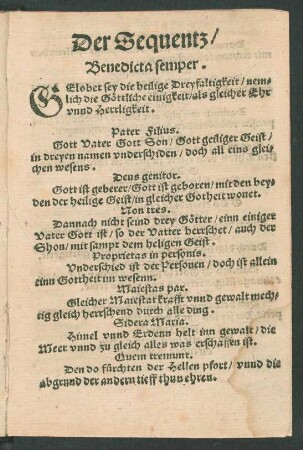 Der Sequentz/
Benedicta semper.
GElobet sey die heilige Dreyfaltigkeit/ nem-
lich die Göttliche einigkeit/ als gleicher Ehr
vnnd Herrligkeit.
Pater Filius.
Gott Vater Gott Son/ Gott heiliger Geist/
in dreyen namen vnderschiden/ doch all eins glei-
chen wesens.
Deus genitor.
Gott ist geberer/ Gott ist geboren/ mit den bey-
den der heilige Geist/ in gleicher Gotheit wonet.
Non tres.
Dannach nicht seind drey Götter/ einn einiger
Vater Gott ist/ so der Vatter herrschet/ auch der
Shon/ mit sampt dem heligen Geist.
Proprietas in personis.
Vnderschied ist der Personen/ doch ist allein
einn Gottheit im wesenn.
Maiestas par.
Gleicher Maiestat krafft vnnd gewalt mech-
tig gleich herrschend durch alle ding.
Sidera Maria.
Himel vnnd Erdenn helt inn gewalt/ die
Meer vnnd zu gleich alles was erschaffen ist.
Quem tremunt.
Den do fürchten der Hellen pfort/ vnnd die
abgrund der andern tieff thun ehren.